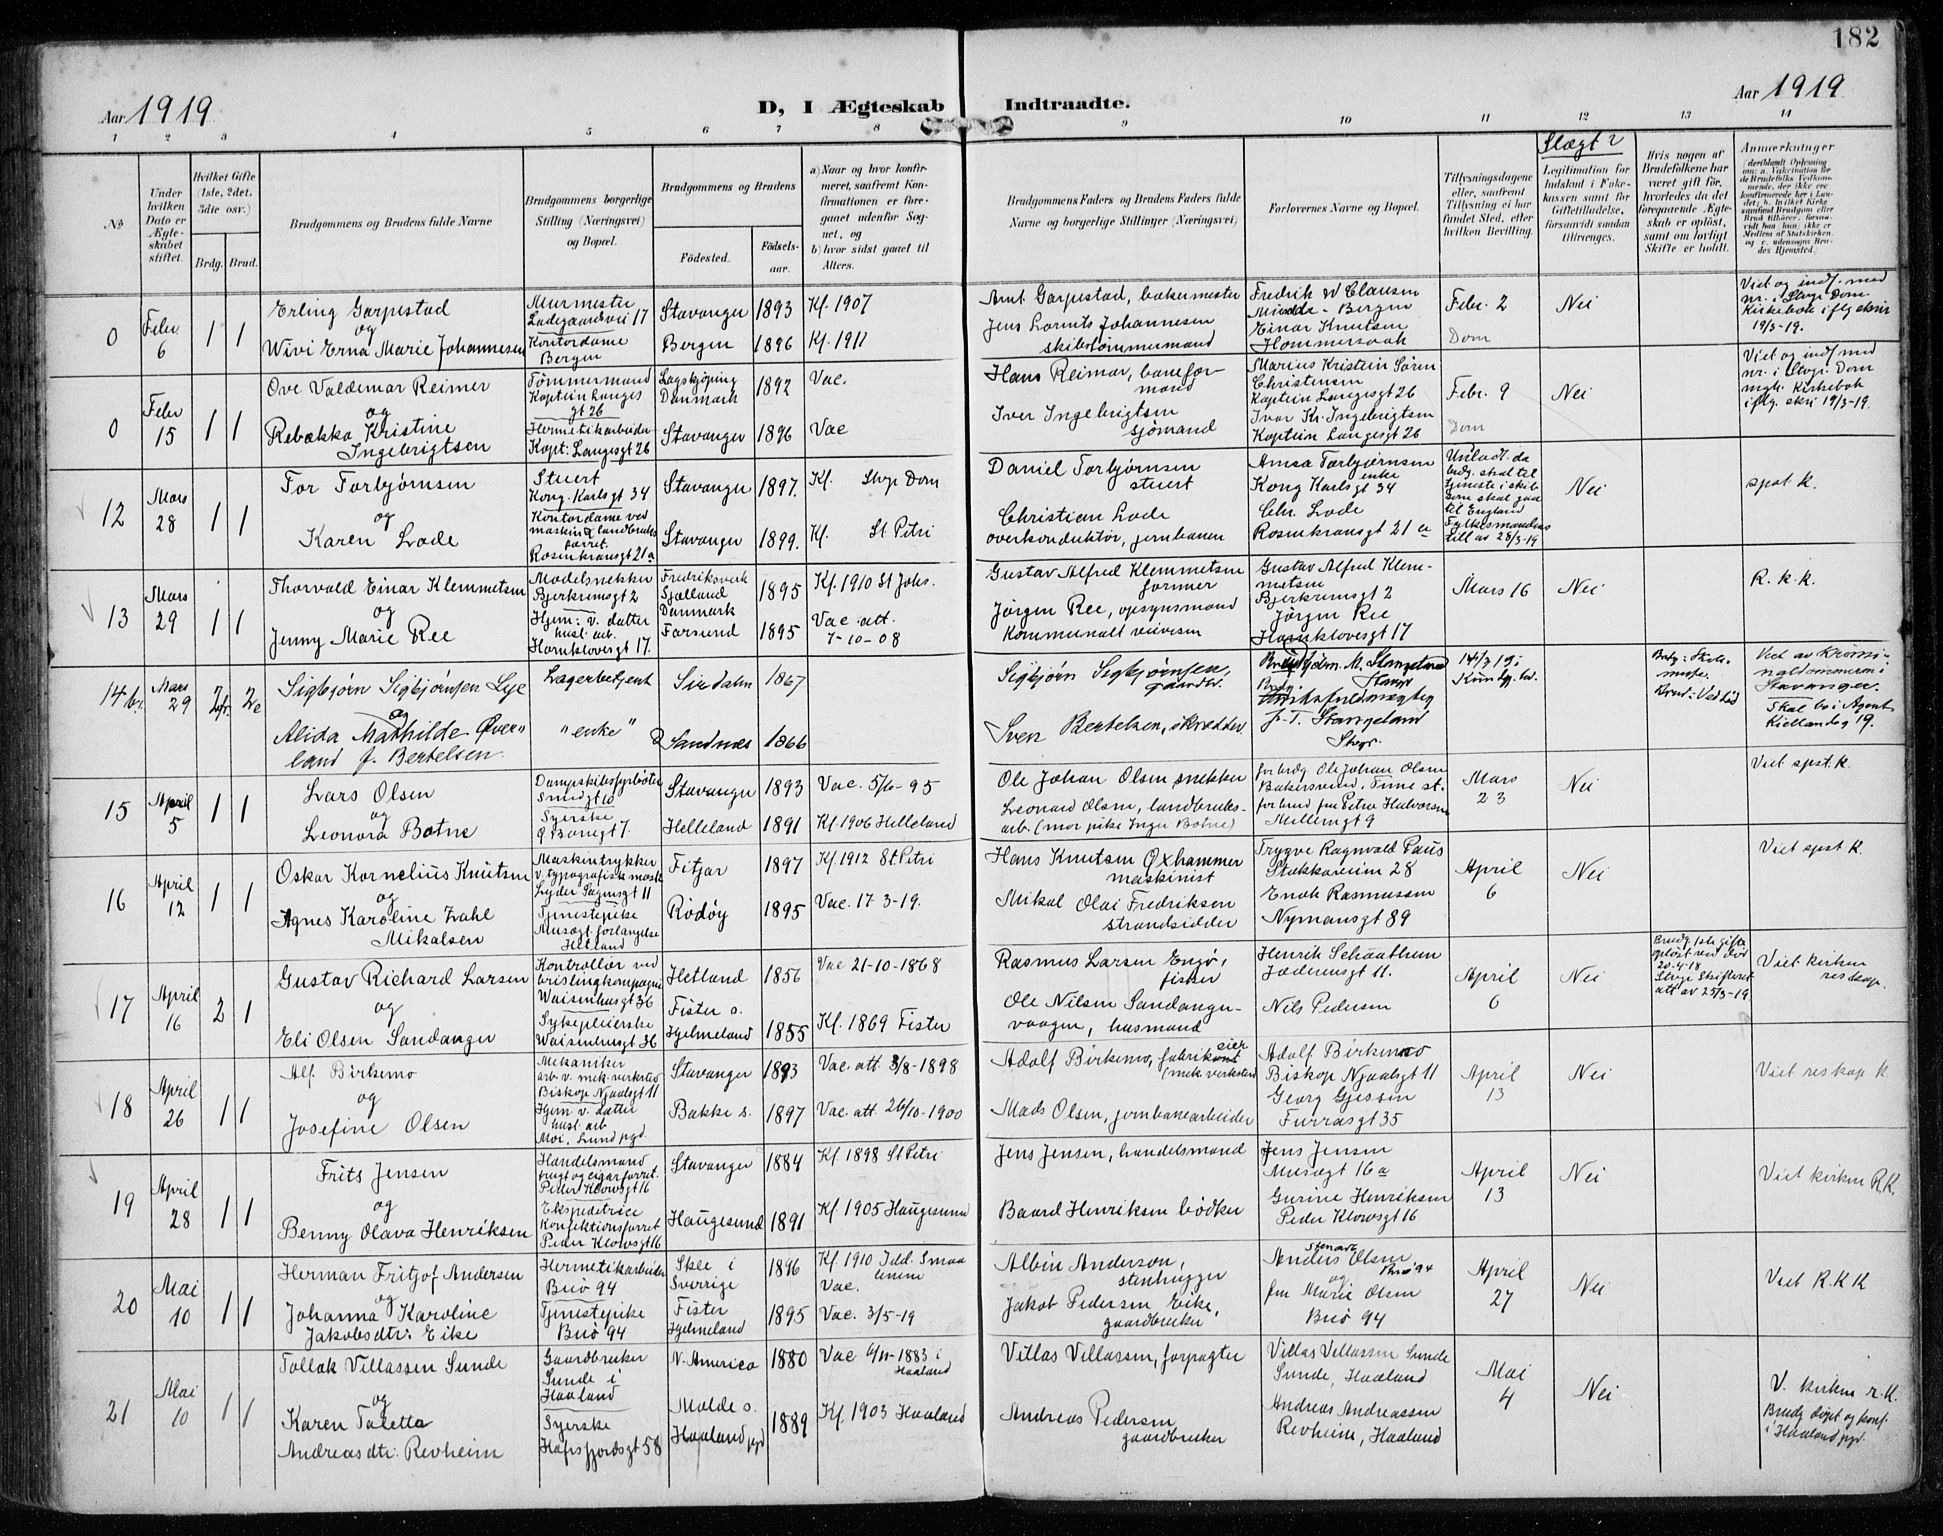 182
Aar 1919
D, I Ægteskab Indtraadte.
Aar 1919
1 2 3 4 5 6 7 8 9 10 11 12 13 14
No
Under hvilken Dato er Ægteskabet stiftet.
Hvilket Gifte (1ste, 2det, 3die osv.)
Brdg. Brud.
Brudgommens og Brudens fulde Navne
Brudgommens borgerlige Stilling (Næringsvei) og Bopæl.
Brudgommens og Brudens
Födested.
Födselsaar.
a) Naar og hvor konfirmeret, saafremt Konfirmationen er foregaaet udenfor Sognet, og
b) hvor sidst gaaet til Alters.
Brudgommens Faders og Brudens Faders fulde Navne og borgerlige Stillinger (Næringsvei)
Forlovernes Navne og Bopæl.
Tillysningsdagene eller, saafremt Tillysning ei har fundet Sted, efter hvilken Bevilling.
Slægt?
Legitimation for Indskud i Enkekassen samt for Giftetilladelse, forsaavidt saadan tiltrænges.
Hvis nogen af Brudefolkene har været gift för, hvorledes da det foregaaende Ægteskab er oplöst, samt om lovligt Skifte er holdt.
Anmærkninger
0 Febr 6 1 1
Erling Garpestad
og
Wivi Erna Marie Johannesen
Murmester
Ladegaardsvei 17
Kontordame
Bergen
Stavanger 1893 Kf. 1907
Bergen 1896 Kf. 1911
Arnt Garpestad, bakermester
Jens Lornts Johannesen
skibstømmermand
Fredrik W Clausen
Minde - Bergen
Einar Knutsen
Hommersaak
Febr. 2
Dom
Nei
Viet og indf. med
nr. i Stvgr. Dom
Kirkebok iflg skri
19/3-19.
0 Febr 15 1 1
Ove Valdemar Reimer
og
Rebekka Kristine
Ingebrigtsen
Tømmermand
Kaptein Langes
gt 26
Hermetikarbeider
Kapt: Langesgt 26
Danmark 1892 Vac.
Stavanger 1896 Vac
Hans Reimar, banefor-
mand
Iver Ingebrigtsen
sjømand
Marius Kristein Sören
Christensen
Kaptein Langesgt 26
Ivar Kr. Ingebrigtsen
Kaptein Langesgt 26
Febr. 9
Dom
Nei
Viet og indf med
nr. i Stvgr. Dom
mgh. Kirkebok
iflg. skri 19/3-19.
12 Mars 28 1 1
Tor Torbjørnsen
og
Karen Lode
Stuert
Kong. Karlsgt 34
Kontordame ved
maskin & landbruks
forret.
Rosenkransgt 21a
Stavanger 1897. Kf. Stvgr Dom
Stavanger 1899. Kf. St Petri
Daniel Torbjørnsen
stuert
Christian Lode
overkonduktør, jernbanen
Anna Torbjørnsen
enke
Kong Karlsgt 34
Chr. Lode
Rosenkransgt 21 a
Unladt. da
brdg. skal til
tjeneste i skib
som skal gaa
til England
Fylkesmandens
till av 28/3-19
Nei
spst k.
13 Mars 29 1 1
Thorvald Einar Klemmetsen
og
Jenny Marie Ree
Modelsnekker
Bjerkremsgt 2
Hjem: v. datter
husl. arb.
Haraklovesgt 17.
Fredriksverk
Sjælland
Danmark 1895 Kf. 1910 St Johs.
Farsund 1895 Vac. att.
7-10-08
Gustav Alfred Klemmetsen
former
Jørgen Ree, opsynsmand
Kommunalt veivesen
Gustav Alfred Klem-
metsen
Bjerkremsgt 2
Jørgen Ree
Mars 16
Nei
R. k. k.
14 Mars 29
Sigbjørn Sigbjørnsen Lye
og
Alida Mathilde Øver-
land f. Bertelsen
Lagerbetjent
"enke"
Sirdalen 1867
Sandnes 1866
Sigbjørn Sigbjørnsen,
gaardbr.
Sven Bertelsen, skrædder.
J. T. Stangeland
Stvgr.
Brud: Ved død
Viet av
Stavanger.
Skal bo i Agent
Kiellandsg 19.
15 April 5 1 1
Lars Olsen
og
Leonora Botne
Dampskibsfyrbøter
Smedgt 10
Syerske
Ø Banegt 7.
Stavanger 1893 Vac. 5/6-95
Helleland 1891 Kf. 1906 Helleland
Ole Johan Olsen snekker
Leonard Olsen, landbruks-
arb. (mor pike Inger Botne)
for brdg Ole Johan Olsen
for brud fru Petra Halvorsen
Møllergt 9
Mars
23
Nei
Viet spst. k.
16 April 12 1 1
Oskar Kornelius Knutsen
og
Agnes Karoline Zahl
Mikalsen
Maskintrykker
v. typografisk mask
Lyder Sagensgt 11
Tjenestepike
Hetland
Fitjar 1897 Kf. 1912 St Petri
Rödöy 1895 Vac. 17-3-19.
Hans Knutsen Øxhammer
maskinist
Mikal Olai Fredriksen
strandsidder
Trygve Ragnvald Paus
Stokkaveien 28
Enok Rasmussen
Nymansgt 89
April
6
Nei
Viet spst K.
17 April 16 2 1
Gustav Richard Larsen
og
Eli Olsen Sandanger
Kontrollør ved
brislingkompagni
Waisenhusgt 36
Sykepleierske
Waisenhusgt 36
Hetland 1856 Vac 21-10-1868
Fister s.
Hjelmeland 1855 Kf. 1869 Fister
Rasmus Larsen Engø,
fisker
Ole Nilsen Sandanger-
vaagen, husmand
Henrik Schaathun
Jæderensgt 11.
Nils Pedersen
April
6
Nei
Brudg. 1ste gifte
opløst ved død
20-4-18
Stvgr Skifteret
att av 25/3-19.
Viet kirken
res kap.
18 April 26 1 1
Alf Birkemo
og
Josefine Olsen
Mekaniker
arb. v. mek. verksted
Biskop Njaalsgt 11
Hjem v. datter
husl. arb
Moi, Lund pgd.
Stavanger 1893 Vac. att 3/8-1898
Bakke s. 1897 Vac. att. 26/10-1900
Adolf Birkemo, fabrikeier
(mek. verksted)
Mads Olsen, jernbanearbeider
Adolf Birkemo
Biskop Njaalsgt 11
Georg Gjessen
Furrasgt 35
April
13
Nei
Viet res kap k
19 April 28 1 1
Frits Jensen
og
Benny Olava Henriksen
Handelsmand
frugt og cigarforret.
Peder Klowsgt 16
Ekspeditrice
Konfektionsforret
Peder Klowsgt 16
Stavanger 1884 Kf. 1898 St Petri
Haugesund 1891 Kf. 1905 Haugesund
Jens Jensen, handelsmand
Baard Henriksen bødker
Jens Jensen
Musægt 16 a
Gurine Henriksen
Peder Klowsgt 16
April
13
Nei
Viet kirken R.K.
20 Mai 10 1 1
Herman Fritjof Andersen
og
Johanna Karoline
Jakobsdtr: Eike
Hermetikarbeider
Buø 94
Tjenestepike
Buø 94
Skee i
Sverrige 1896 Kf. 1910 Idd. Smaa
lenene
Vac.
Fister
Hjelmeland 1895 Vac. 3/5-19
Albin Anderson,
stenhugger
Jakob Pedersen Eike,
gaardbruker
Anders Olsen
Buø 94
og
fru Marie Olsen
Buö 94
April
27
Nei
Viet R.K K
21 Mai 10 1 1
Tollak Villassen Sunde
og
Karen Taletta
Andreasdtr: Revheim
Gaardbruker
Sunde i
Haaland
Syerske
Hafrsfjordsgt 58
N. America 1880 Vac 6/11-1883 i
Haaland
Malde s.
Haaland pgd 1889 Kf. 1903 Haaland
Villas Villassen, forpagter
Andreas Pedersen
gaardbruker
Villas Villassen Sunde
Sunde, Haaland
Andreas Andreassen
Revheim, Haaland
Mai
4
Nei
V. kirken r.K.
Brudg døpt og konf
i Haaland pgd.